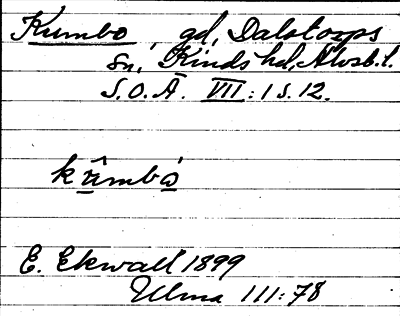 Kumbo, gd, Dalstorps
sn, Kinds hd, Älvsb. l.
S.O.Ä. VII:1 s. 12.
E. Ekwall 1899
Ulma 111:78